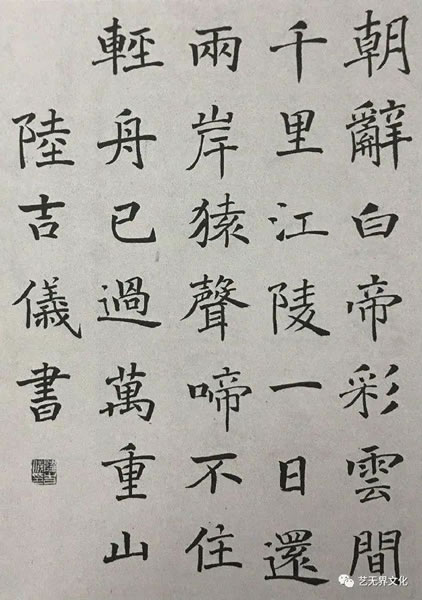 朝辭白帝彩雲間
千里江陵一日還
兩岸猿聲啼不住
輕舟已過萬重山
陸吉儀書
艺无界文化